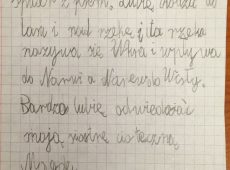 spacer z psem, lubię chodzić do
lasu i nad rzekę i ta rzeka
nazywa się Wkra i wpływa
do Narwi a Narew do Wisły.
Bardzo lubię odwiedzać
moją